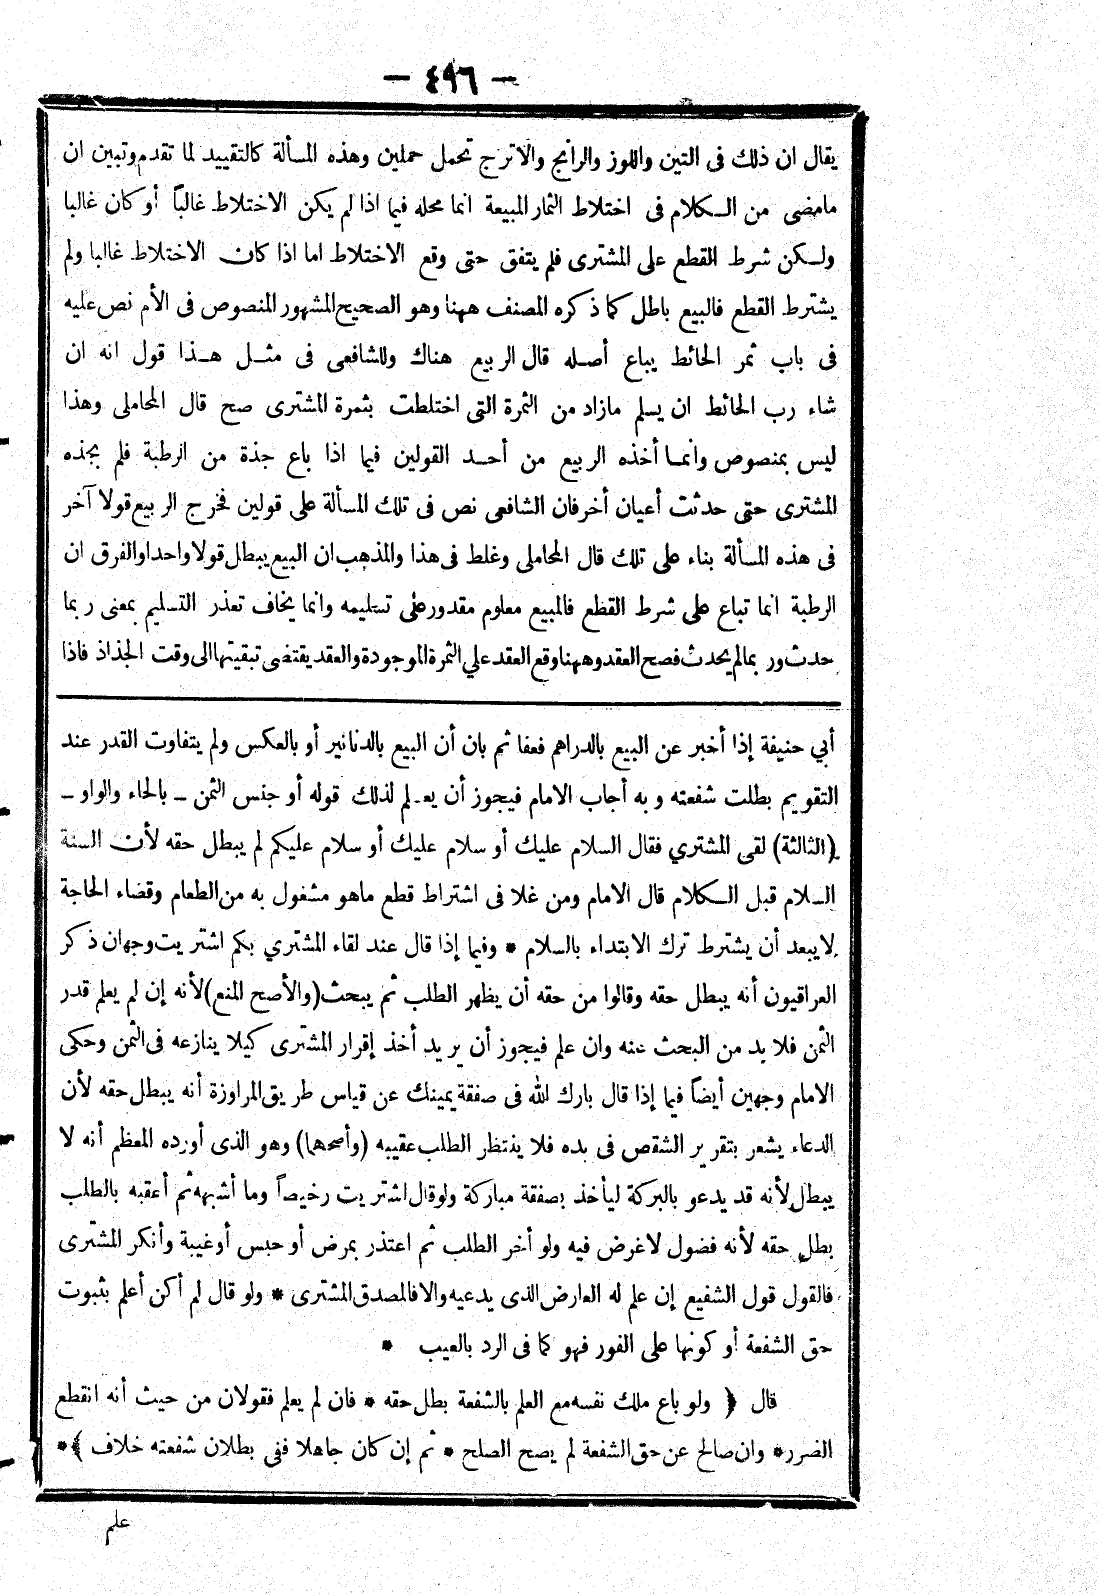 — ٤٩٦ —
يقال ان ذلك فى التين واللوز والرانج والاترج تحمل حملين وهذه المسألة كالتقييد لما تقدم وتبين ان
مامضى من الـكلام فى اختلاط الثمار المبيعة انما محله فيما اذا لم يكن الاختلاط غالباً أو كان غالبا
ولـكن شرط القطع على المشترى فلم يتفق حتى وقع الاختلاط اما اذا كان الاختلاط غالبا ولم
يشترط القطع فالبيع باطل كما ذكره المصنف ههنا وهو الصحيح المشهور المنصوص فى الأم نص عليه
فى باب ثمر الحائط يباع أصله قال الربيع هناك وللشافعى فى مثـل هـذا قول انه ان
شاء رب الحائط ان يسلم مازاد من الثمرة التى اختلطت بثمرة المشترى صح قال المحاملى وهذا
ليس بمنصوص وانمـا أخذه الربيع من أحـد القولين فيما اذا باع جذة من الرطبة فلم يجذه
المشترى حتى حدثت أعيان أخرفان الشافعى نص فى تلك المسألة على قولين فخرج الربيع قولا آخر
فى هذه المسألة بناء على تلك قال المحاملى وغلط فى هذا والمذهب ان البيع يبطل قولا واحدا والفرق ان
الرطبة انما تباع على شرط القطع فالمبيع معلوم مقدور على تسليمه وانما يخاف تعذر التسليم بمعنى ربما
حدث وربمالم يحدث فصح العقد وههنا وقع العقد علي الثمرة الموجودة والعقد يقتضى تبقيتها الى وقت الجذاذ فاذا
أبي حنيفة إذا أخبر عن البيع بالدراهم فعفا ثم بان أن البيع بالدنانير أو بالعكس ولم يتفاوت القدر عند
التقويم بطلت شفعته وبه أجاب الامام فيجوز أن يعـلم لذلك قوله أو جنس الثمن ـ بالحاء والواو ـ
(الثالثة) لقى المشتري فقال السلام عليك أو سلام عليك أو سلام عليكم لم يبطل حقه لأن السنة
السلام قبل الـكلام قال الامام ومن غلا فى اشتراط قطع ماهو مشغول به من الطعام وقضاء الحاجة
لا يبعد أن يشترط ترك الابتداء بالسلام * وفيما إذا قال عند لقاء المشتري بكم اشتريت وجهان ذكر
العراقيون أنه يبطل حقه وقالوا من حقه أن يظهر الطلب ثم يبحث (والأصح المنع) لأنه إن لم يعلم قدر
الثمن فلا بد من البحث عنه وان علم فيجوز أن يريد أخذ إقرار المشترى كيلا ينازعه فى الثمن وحكى
الامام وجهين أيضاً فيما إذا قال بارك الله فى صفقة يمينك عن قياس طريق المراوزة أنه يبطل حقه لأن
الدعاء يشعر بتقرير الشقص فى يده فلا ينتظر الطلب عقيبه (وأصحهما) وهو الذى أورده المعظم أنه لا
يبطل لأنه قد يدعو بالبركة ليأخذ بصفقة مباركة ولو قال اشتريت رخيصاً وما أشبهه ثم أعقبه بالطلب
بطل حقه لأنه فضول لا غرض فيه ولو أخر الطلب ثم اعتذر بمرض أو حبس أو غيبة وأنكر المشترى
فالقول قول الشفيع إن علم له العارض الذى يدعيه والا فالمصدق المشترى * ولو قال لم أكن أعلم بثبوت
حق الشفعة أو كونها على الفور فهو كما فى الرد بالعيب *
قال ﴿ ولو باع ملك نفسه مع العلم بالشفعة بطل حقه * فان لم يعلم فقولان من حيث أنه انقطع
الضرر * وان صالح عن حق الشفعة لم يصح الصلح * ثم إن كان جاهلا ففى بطلان شفعته خلاف ﴾ *
علم